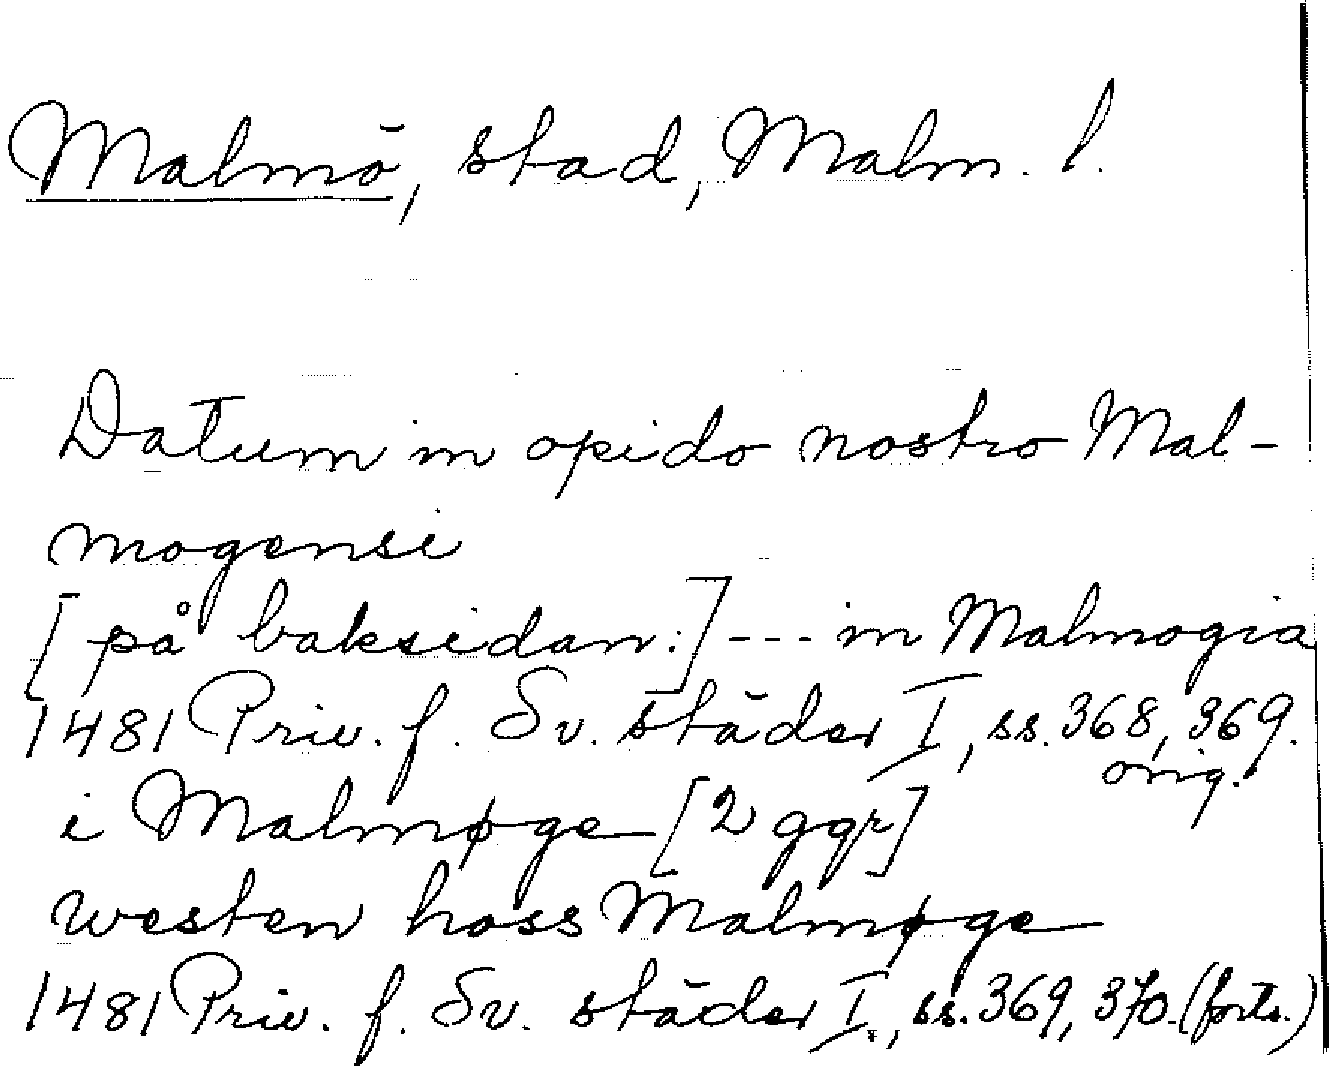 Malmö, stad, Malm. l.
Datum in opido nostro Mal-
mogensi
[på baksidan:] --- in Malmogia
1481 Priv. f. Sv. städer I, ss. 368, 369.
orig.
i Malmøge [2 ggr]
westen hoss Malmøge
1481 Priv. f. Sv. städer I., ss. 369, 370. (forts.)